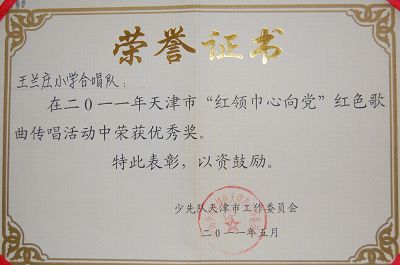 荣誉证书
王兰庄小学合唱队：
在二〇一一年天津市“红领巾心向党”红色歌
曲传唱活动中荣获优秀奖。
特此表彰，以资鼓励。
少先队天津市工作委员会
二〇一一年五月